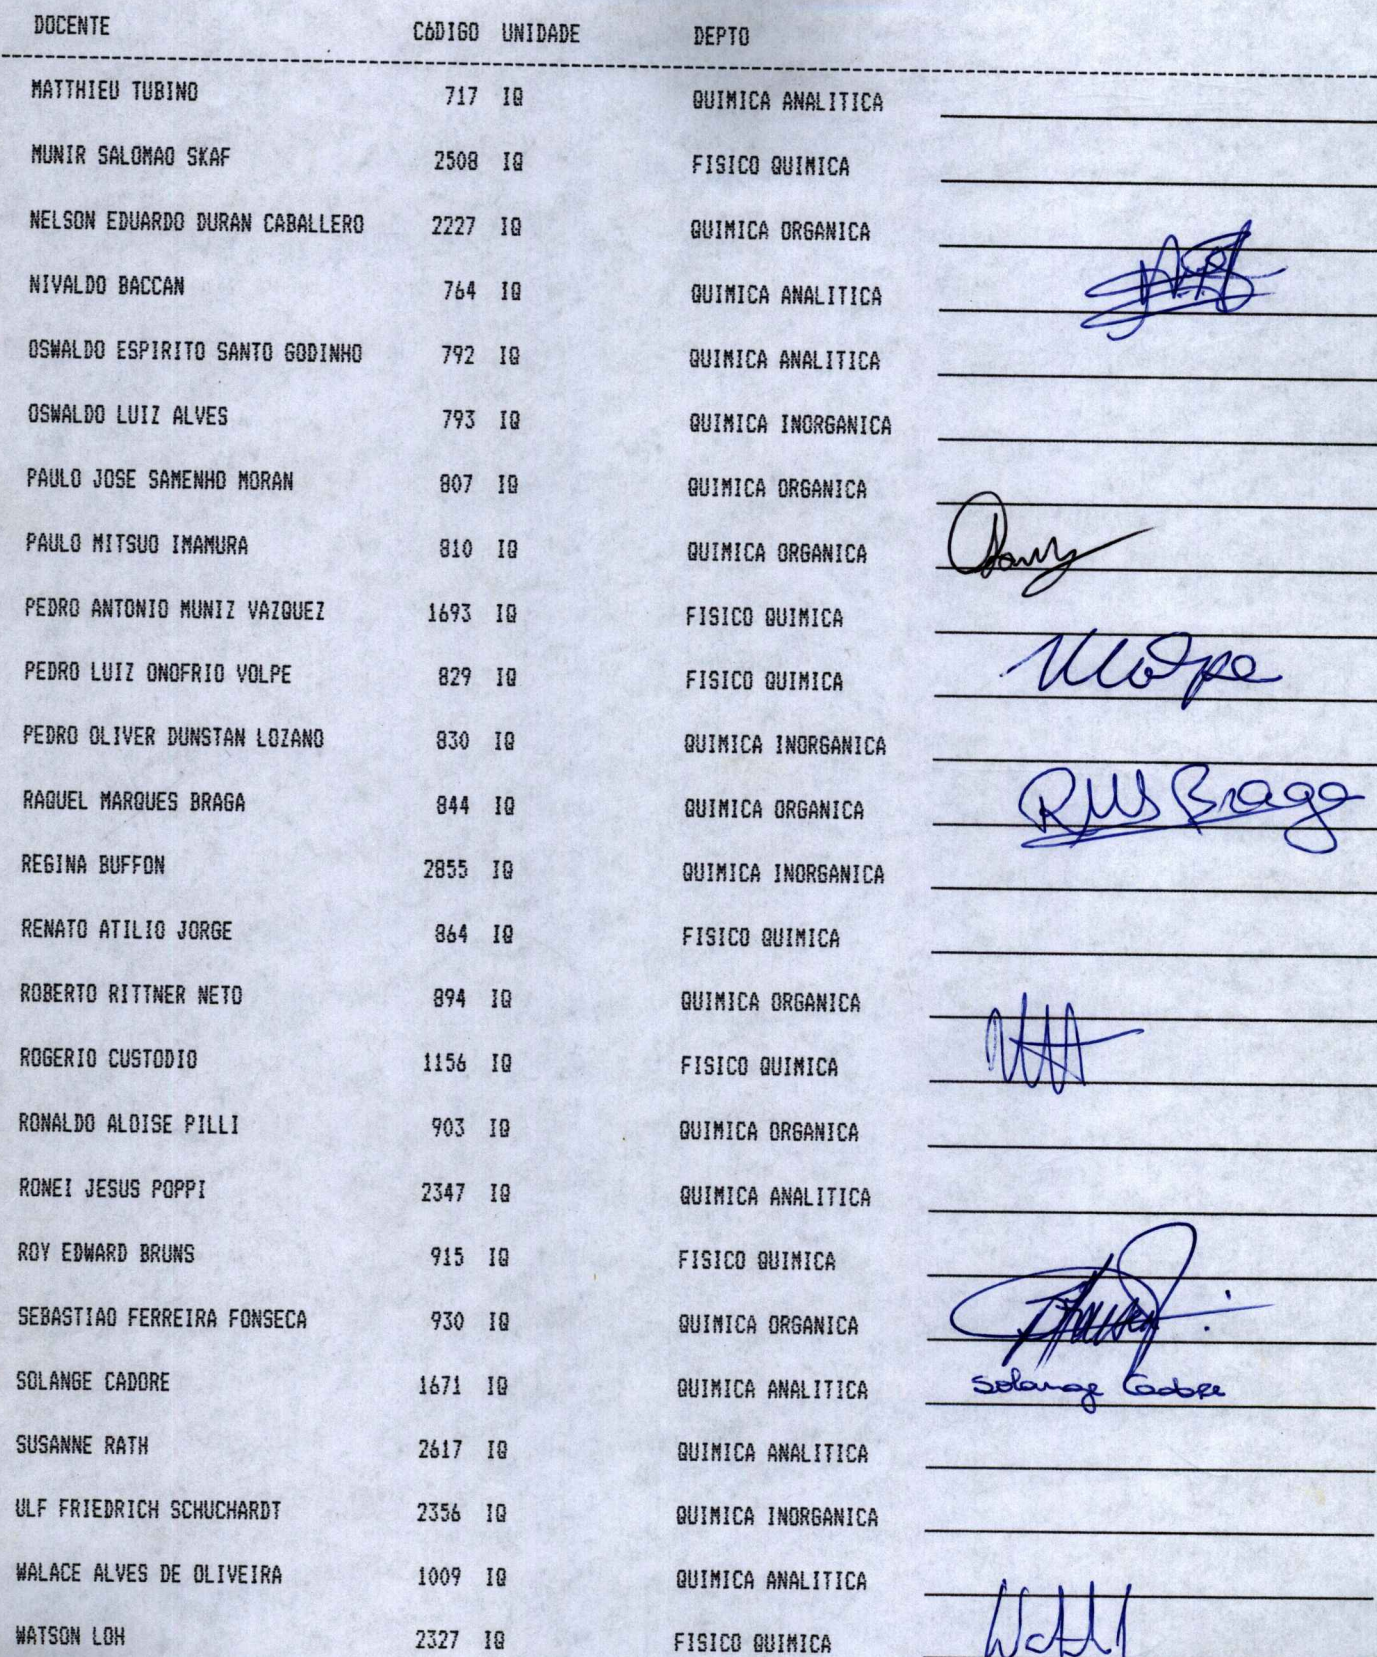 DOCENTE CóDIGO UNIDADE DEPTO
MATTHIEU TUBINO 717 IQ QUIMICA ANALITICA
MUNIR SALOMAO SKAF 2508 IQ FISICO QUIMICA
NELSON EDUARDO DURAN CABALLERO 2227 IQ QUIMICA ORGANICA
NIVALDO BACCAN 764 IQ QUIMICA ANALITICA
OSWALDO ESPIRITO SANTO GODINHO 792 IQ QUIMICA ANALITICA
OSWALDO LUIZ ALVES 793 IQ QUIMICA INORGANICA
PAULO JOSE SAMENHO MORAN 807 IQ QUIMICA ORGANICA
PAULO MITSUO IMAMURA 810 IQ QUIMICA ORGANICA
PEDRO ANTONIO MUNIZ VAZQUEZ 1693 IQ FISICO QUIMICA
PEDRO LUIZ ONOFRIO VOLPE 829 IQ FISICO QUIMICA Volpe
PEDRO OLIVER DUNSTAN LOZANO 830 IQ QUIMICA INORGANICA
RAQUEL MARQUES BRAGA 844 IQ QUIMICA ORGANICA Braga
REGINA BUFFON 2855 IQ QUIMICA INORGANICA
RENATO ATILIO JORGE 864 IQ FISICO QUIMICA
ROBERTO RITTNER NETO 894 IQ QUIMICA ORGANICA
ROGERIO CUSTODIO 1156 IQ FISICO QUIMICA
RONALDO ALOISE PILLI 903 IQ QUIMICA ORGANICA
RONEI JESUS POPPI 2347 IQ QUIMICA ANALITICA
ROY EDWARD BRUNS 915 IQ FISICO QUIMICA
SEBASTIAO FERREIRA FONSECA 930 IQ QUIMICA ORGANICA
SOLANGE CADORE 1671 IQ QUIMICA ANALITICA Solange Cadore
SUSANNE RATH 2617 IQ QUIMICA ANALITICA
ULF FRIEDRICH SCHUCHARDT 2356 IQ QUIMICA INORGANICA
WALACE ALVES DE OLIVEIRA 1009 IQ QUIMICA ANALITICA
WATSON LOH 2327 IQ FISICO QUIMICA